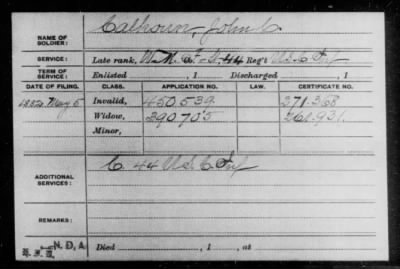 NAME OF SOLDIER: Calhoun, John C.
SERVICE: Late rank, Reg't U.S.C. Inf
TERM OF SERVICE: Enlisted , 1 Discharged , 1
DATE OF FILING. CLASS. APPLICATION NO. LAW. CERTIFICATE NO.
1882 May 5 Invalid, 450.539 271.368
Widow, 390.705 268.931
Minor,
ADDITIONAL SERVICES: C. 44 U.S.C. Inf
REMARKS:
N.D.A.
Died , 1 , at